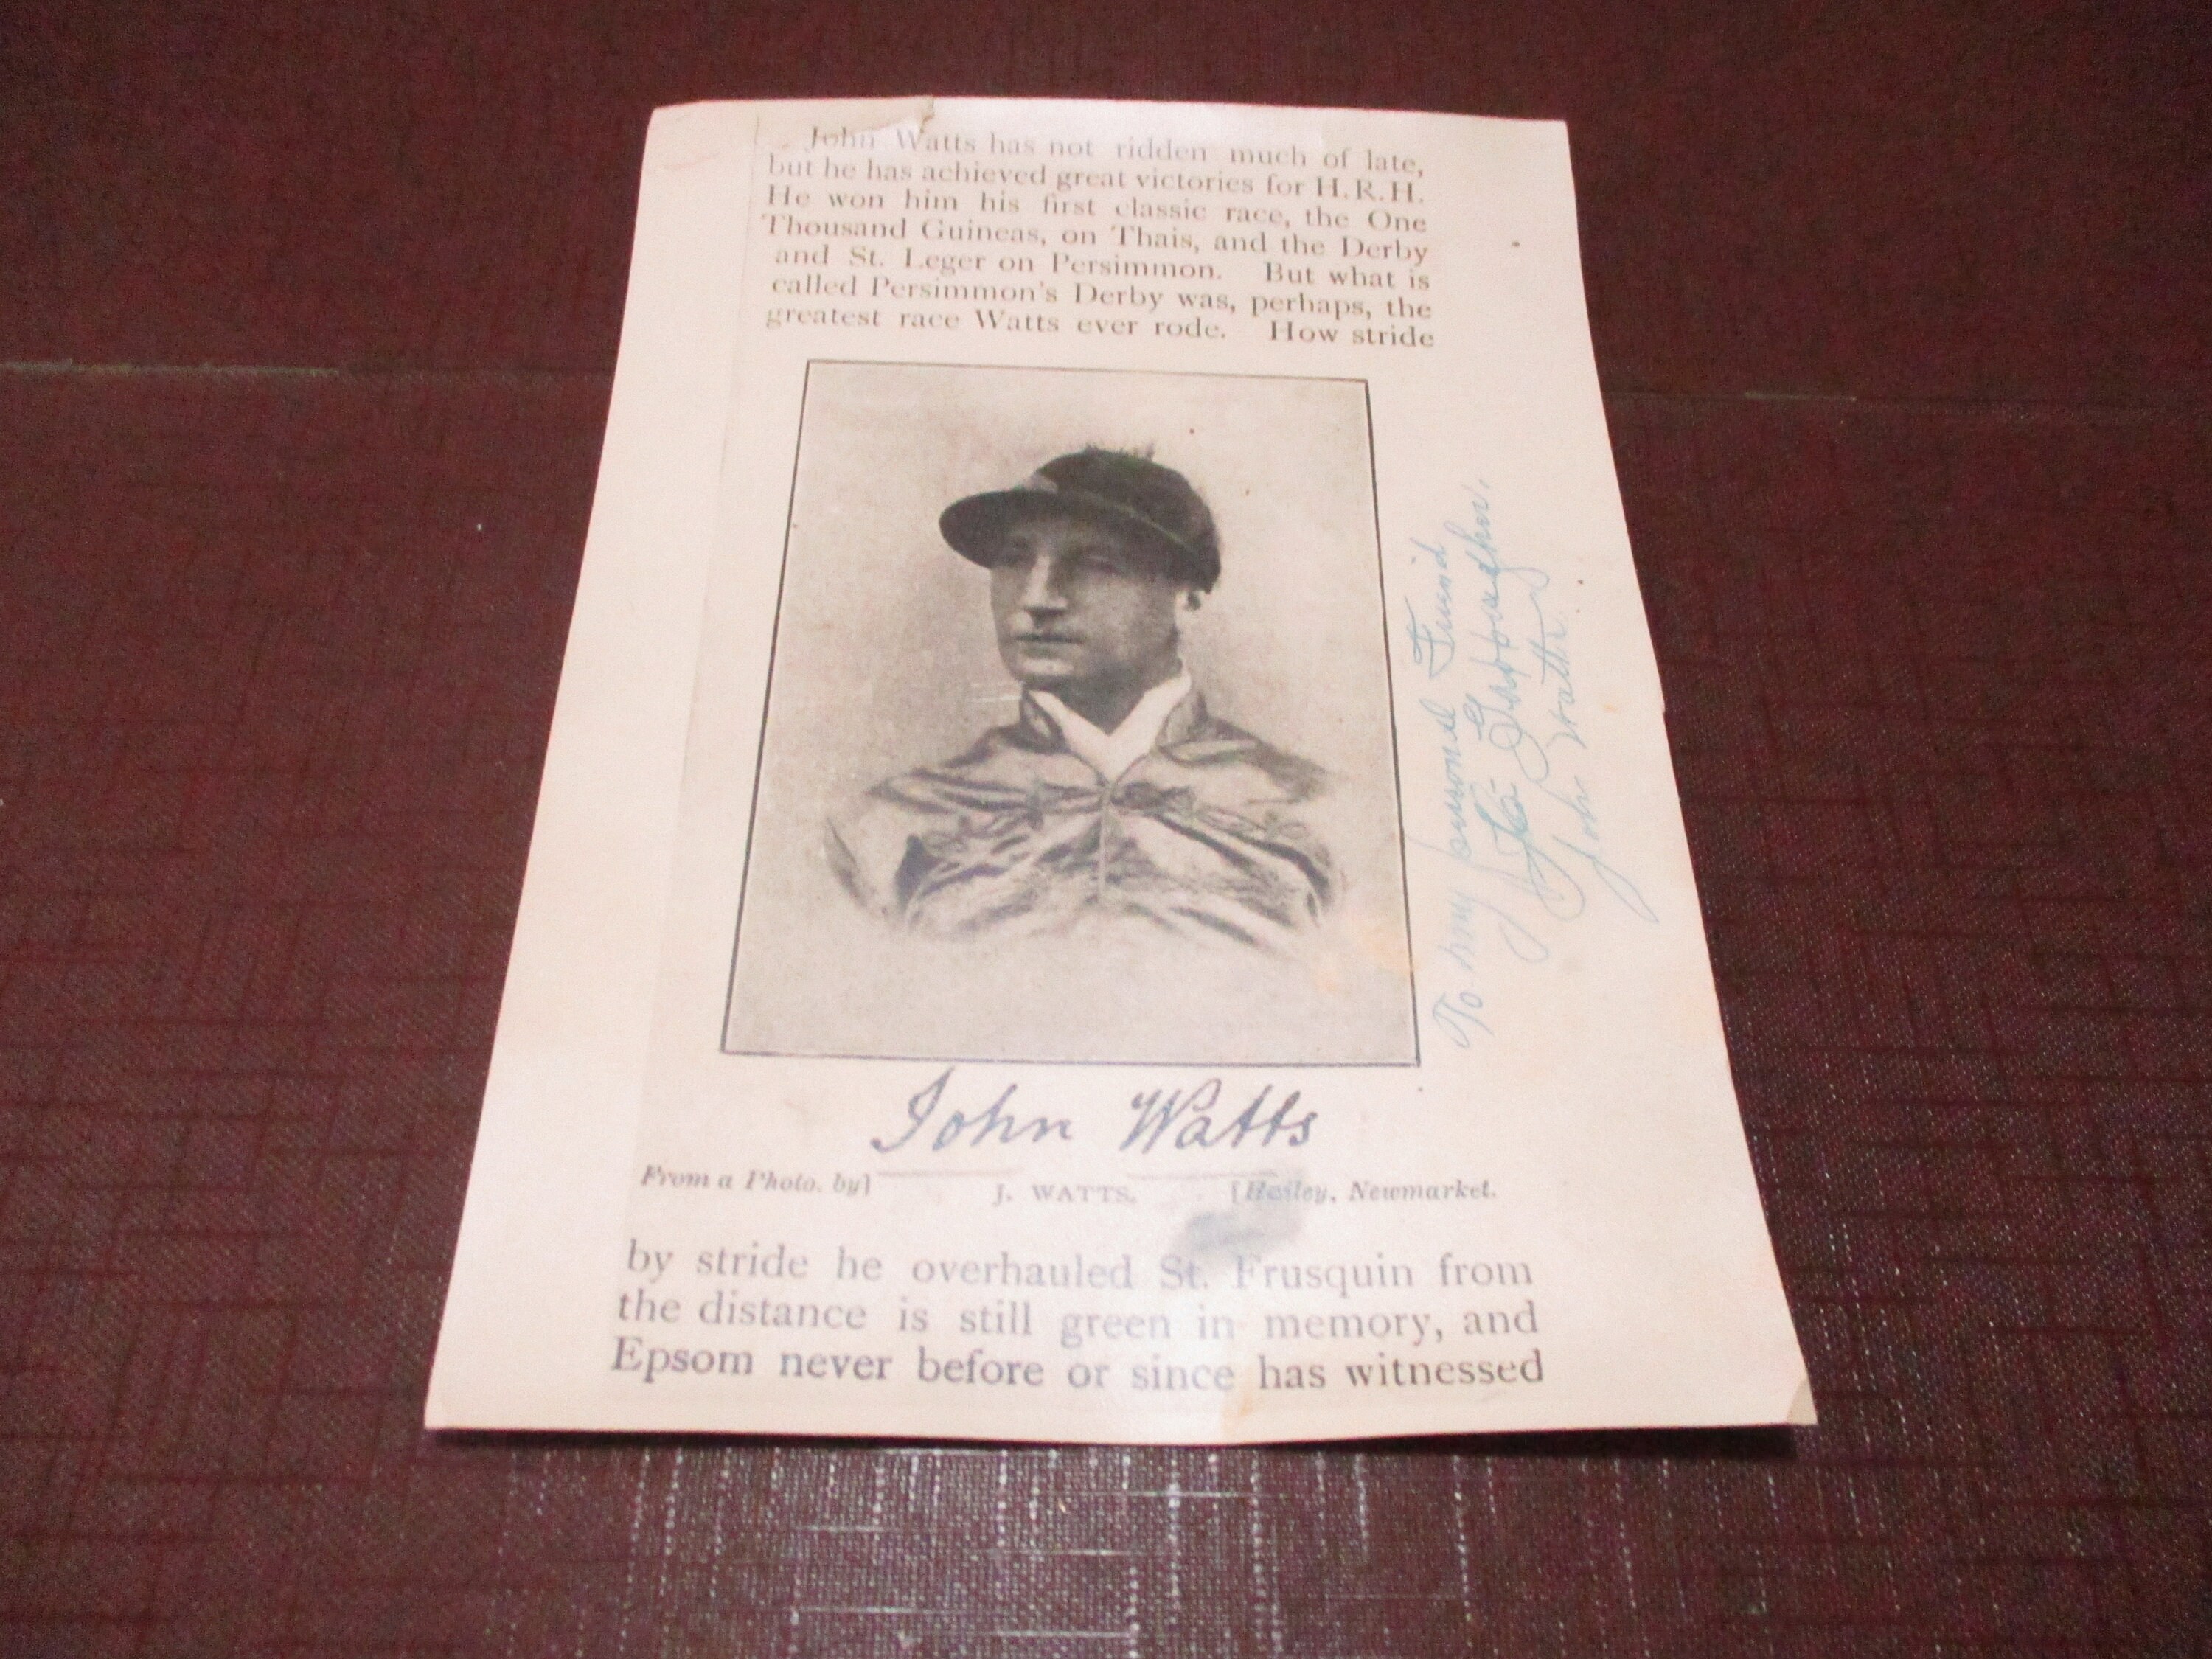 John Watts has not ridden much of late,
but he has achieved great victories for H.R.H.
He won him his first classic race, the One
Thousand Guineas, on Thais, and the Derby
and St. Leger on Persimmon. But what is
called Persimmon's Derby was, perhaps, the
greatest race Watts ever rode. How stride
To my personal Friend
John Watts.
John Watts
From a Photo. by]
J. WATTS.
[Hailey, Newmarket.
by stride he overhauled St. Frusquin from
the distance is still green in memory, and
Epsom never before or since has witnessed